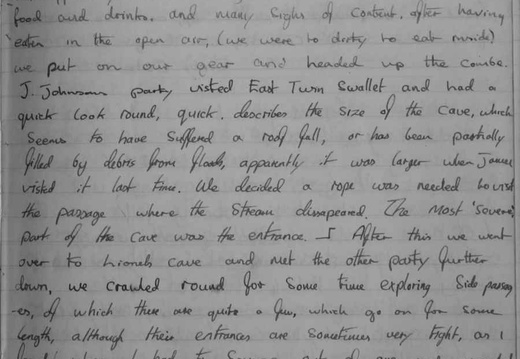 food and drinks. and many sighs of content. after having
eaten in the open air, (we were to dirty to eat inside)
we put on our gear and headed up the combe.
J. Johnsons party visted East Twin Swallet and had a
quick look round, quick. describes the size of the cave, which
seems to have suffered a roof fall, or has been partially
filled by debris from floods, apparently it was larger when
visted it last time. We decided a rope was needed to visit
the passage where the stream dissapeared. The most 'severe'
part of the cave was the entrance. After this we went
over to Lionels Cave and met the other party further
down, we crawled round for some time exploring side passag
-es, of which there are quite a few, which go on for some
length, although their entrances are sometimes very tight, as I